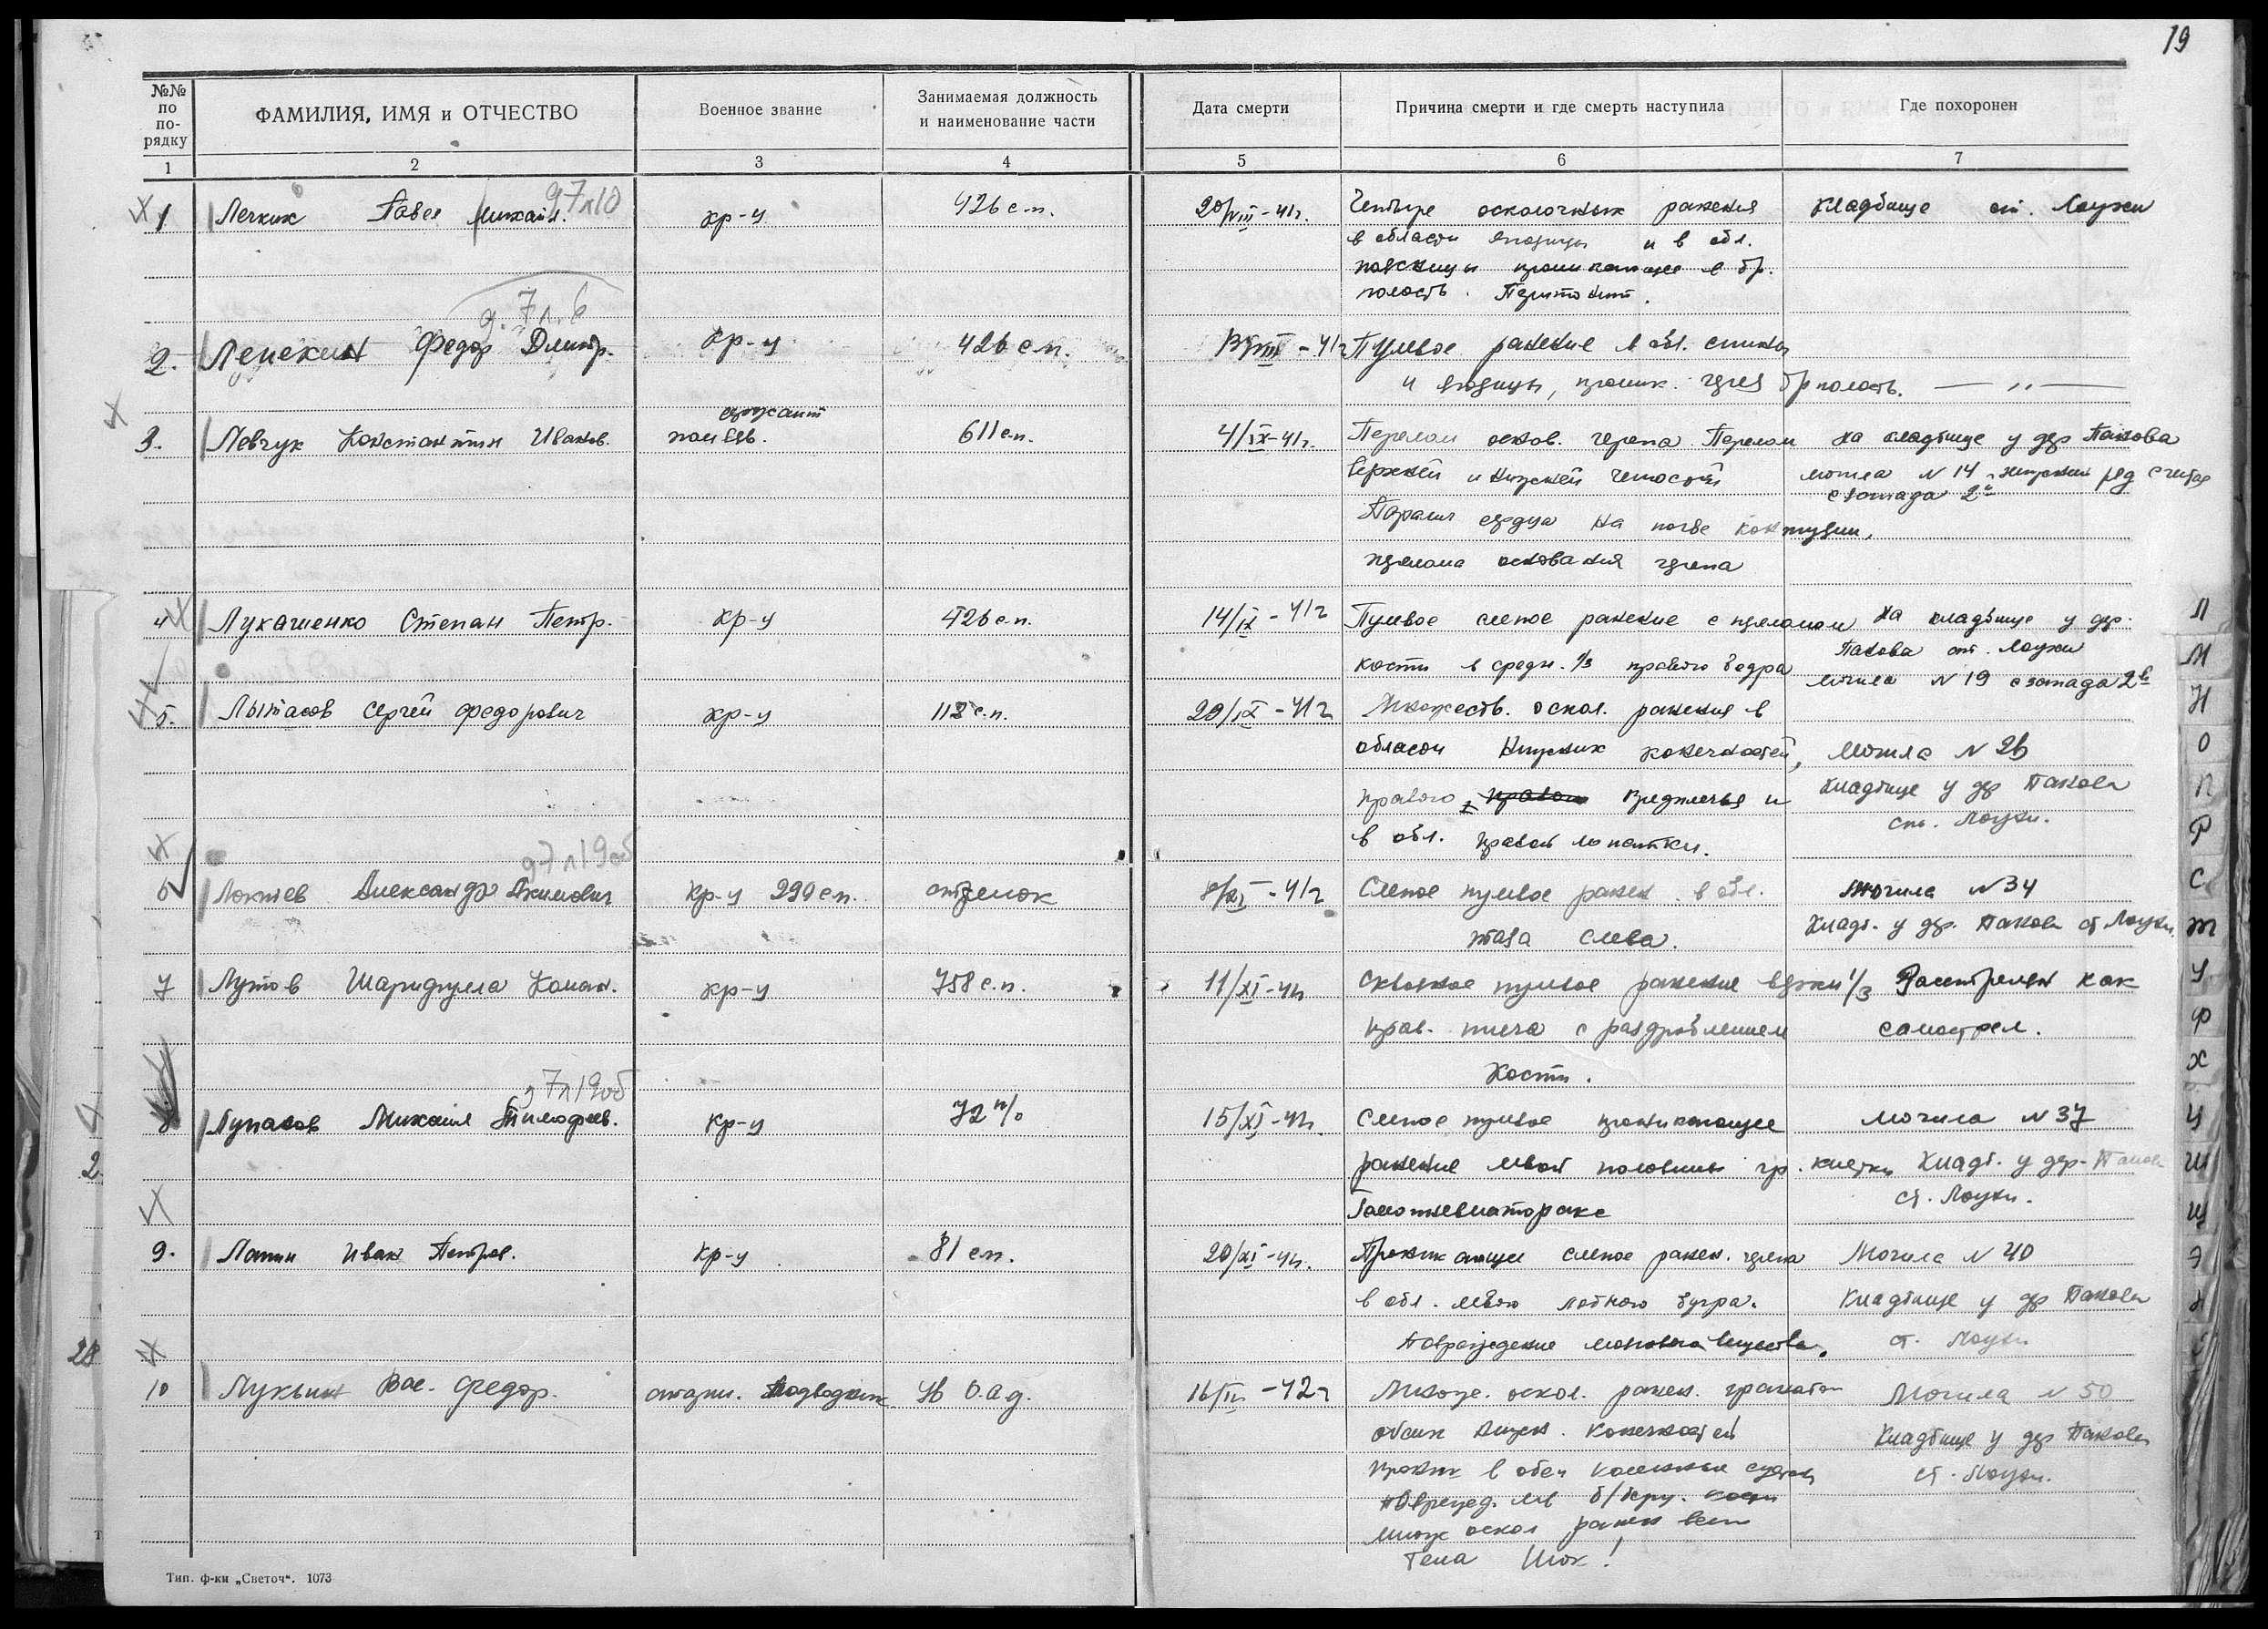 19
№№ по по-рядку
ФАМИЛИЯ, ИМЯ и ОТЧЕСТВО
Военное звание
Занимаемая должность и наименование части
Дата смерти
Причина смерти и где смерть наступила
Где похоронен
1 2 3 4 5 6 7
д7л10
1 Лечкин Павел Михайл. кр-ц 426 с.п. 20/VIII-41г. Четыре осколочных ранения кладбище ст. Лоухи
в области ягодицы и в обл.
поясницы проникающее в бр.
полость. Перитонит.
д.7л.6
2. Лепекин Федор Дмитр. кр-ц 426 с.п. VIII-41г Пулевое ранение в обл. спины
и ягодицы, проник. через бр полость. — „ —
3. Левчук Константин Иванов. сержант 611 с.п. 4/IX-41г. Перелом основ. черепа. Перелом на кладбище у дер Пакова
верхней и нижней челюсти могила N 14 ряд считая
с запада 2й
Паралич сердца на почве контузии,
перелома основания черепа
4 Лукашенко Степан Петр. кр-ц 426 с.п. 14/IX-41г Пулевое слепое ранение с переломом на кладбище у дер.
кости в средн. 1/3 правого бедра Пакова ст. Лоухи
могила N 19 с запада 2й
5. Лытасов Сергей Федорович кр-ц 112 с.п. 29/IX-41г Множеств. оскол. ранения в
области нижних конечностей, Могила N 26
правого правого предплечья и Кладбище у дер Пакова
в обл. правой лопатки. ст. Лоухи.
д7л19об
6 Локтев Александр Акимович кр-ц 290 с.п. стрелок 8/XI-41г Слепое пулевое ранен. в обл. Могила N 34
таза слева. Кладб. у дер. Пакова ст Лоухи.
7 Лутов Шаригула Коман. кр-ц 758 с.п. 11/XI-41г Сквозное пулевое ранение верхн 1/3 Расстрелян как
прав. плеча с раздроблением самострел.
кости.
д7л19об
8 Лупасов Михаил Тимофеев. кр-ц 72 п/о 15/XI-41г. Слепое пулевое проникающее Могила N 37
ранение левой половины гр. клетки Кладб. у дер. Пакова
Гемопневматоракс ст. Лоухи.
9. Лапин Иван Петров. кр-ц 81 с.п. 20/XI-41г. Проникающее слепое ранен. черепа Могила N 40
в обл. левого лобного бугра. Кладбище у дер Пакова
Повреждение мозгового вещества. ст. Лоухи
10 Лукьин Вас. Федор. старш. 16/III-42г Множе. оскол. ранен. гранатой Могила N 50
обеих нижн. конечностей Кладбище у дер Пакова
проник в обеи коленные суставы ст. Лоухи.
Поврежд. лев б/берц. кости
множ оскол ранен всего
тела Шок!
Л
М
Н
О
П
Р
С
Т
У
Ф
Х
Ц
Ш
Щ
Э
Тип. ф-ки „Светоч". 1073